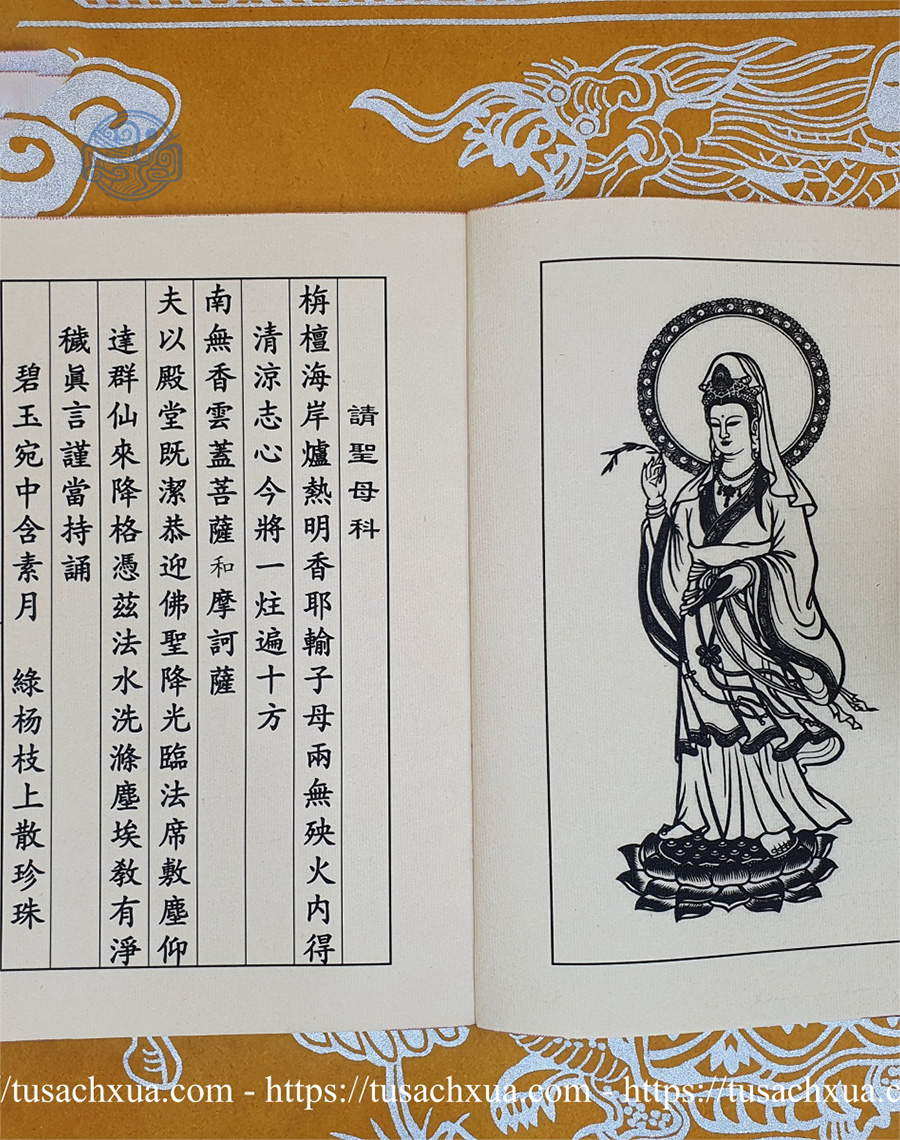 請聖母科
栴檀海岸爐熱明香耶輸子母兩無殃火内得
清涼志心今將一炷遍十方
南無香雲蓋菩薩和摩訶薩
夫以殿堂既潔恭迎佛聖降光臨法席敷塵仰
達群仙來降格憑茲法水洗滌塵埃教有淨
穢眞言謹當持誦
碧玉宛中含素月　綠杨枝上散珍珠
//tusachxua.com - https://tusachxua.com - https://tusachxua.c